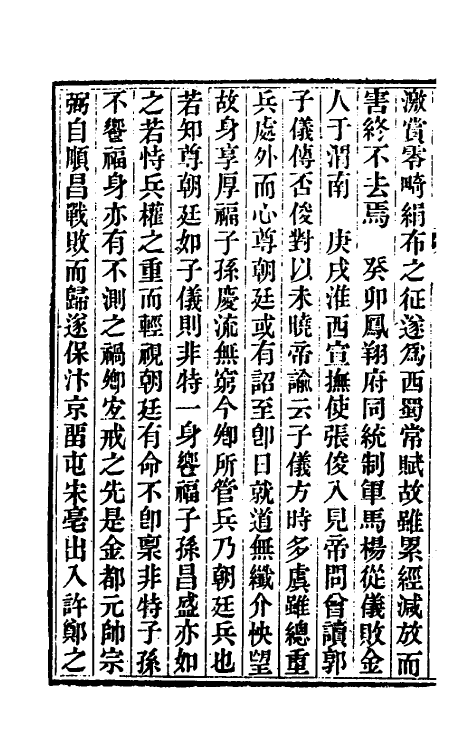 激賞零畸絹布之征遂爲西蜀常賦故雖累經減放而
害終不去焉　癸卯鳳翔府同統制軍馬楊從儀敗金
人于渭南　庚戌淮西宣撫使張俊入見帝問曾讀郭
子儀傳否俊對以未曉帝諭云子儀方時多虞雖總重
兵處外而心尊朝廷或有詔至卽日就道無纖介怏望
故身享厚福子孫慶流無窮今卿所管兵乃朝廷兵也
若知尊朝廷如子儀則非特一身饗福子孫昌盛亦如
之若恃兵權之重而輕視朝廷有命不卽稟非特子孫
不饗福身亦有不測之禍卿宜戒之先是金都元帥宗
弼自順昌戰敗而歸遂保汴京畱屯宋亳出入許鄭之